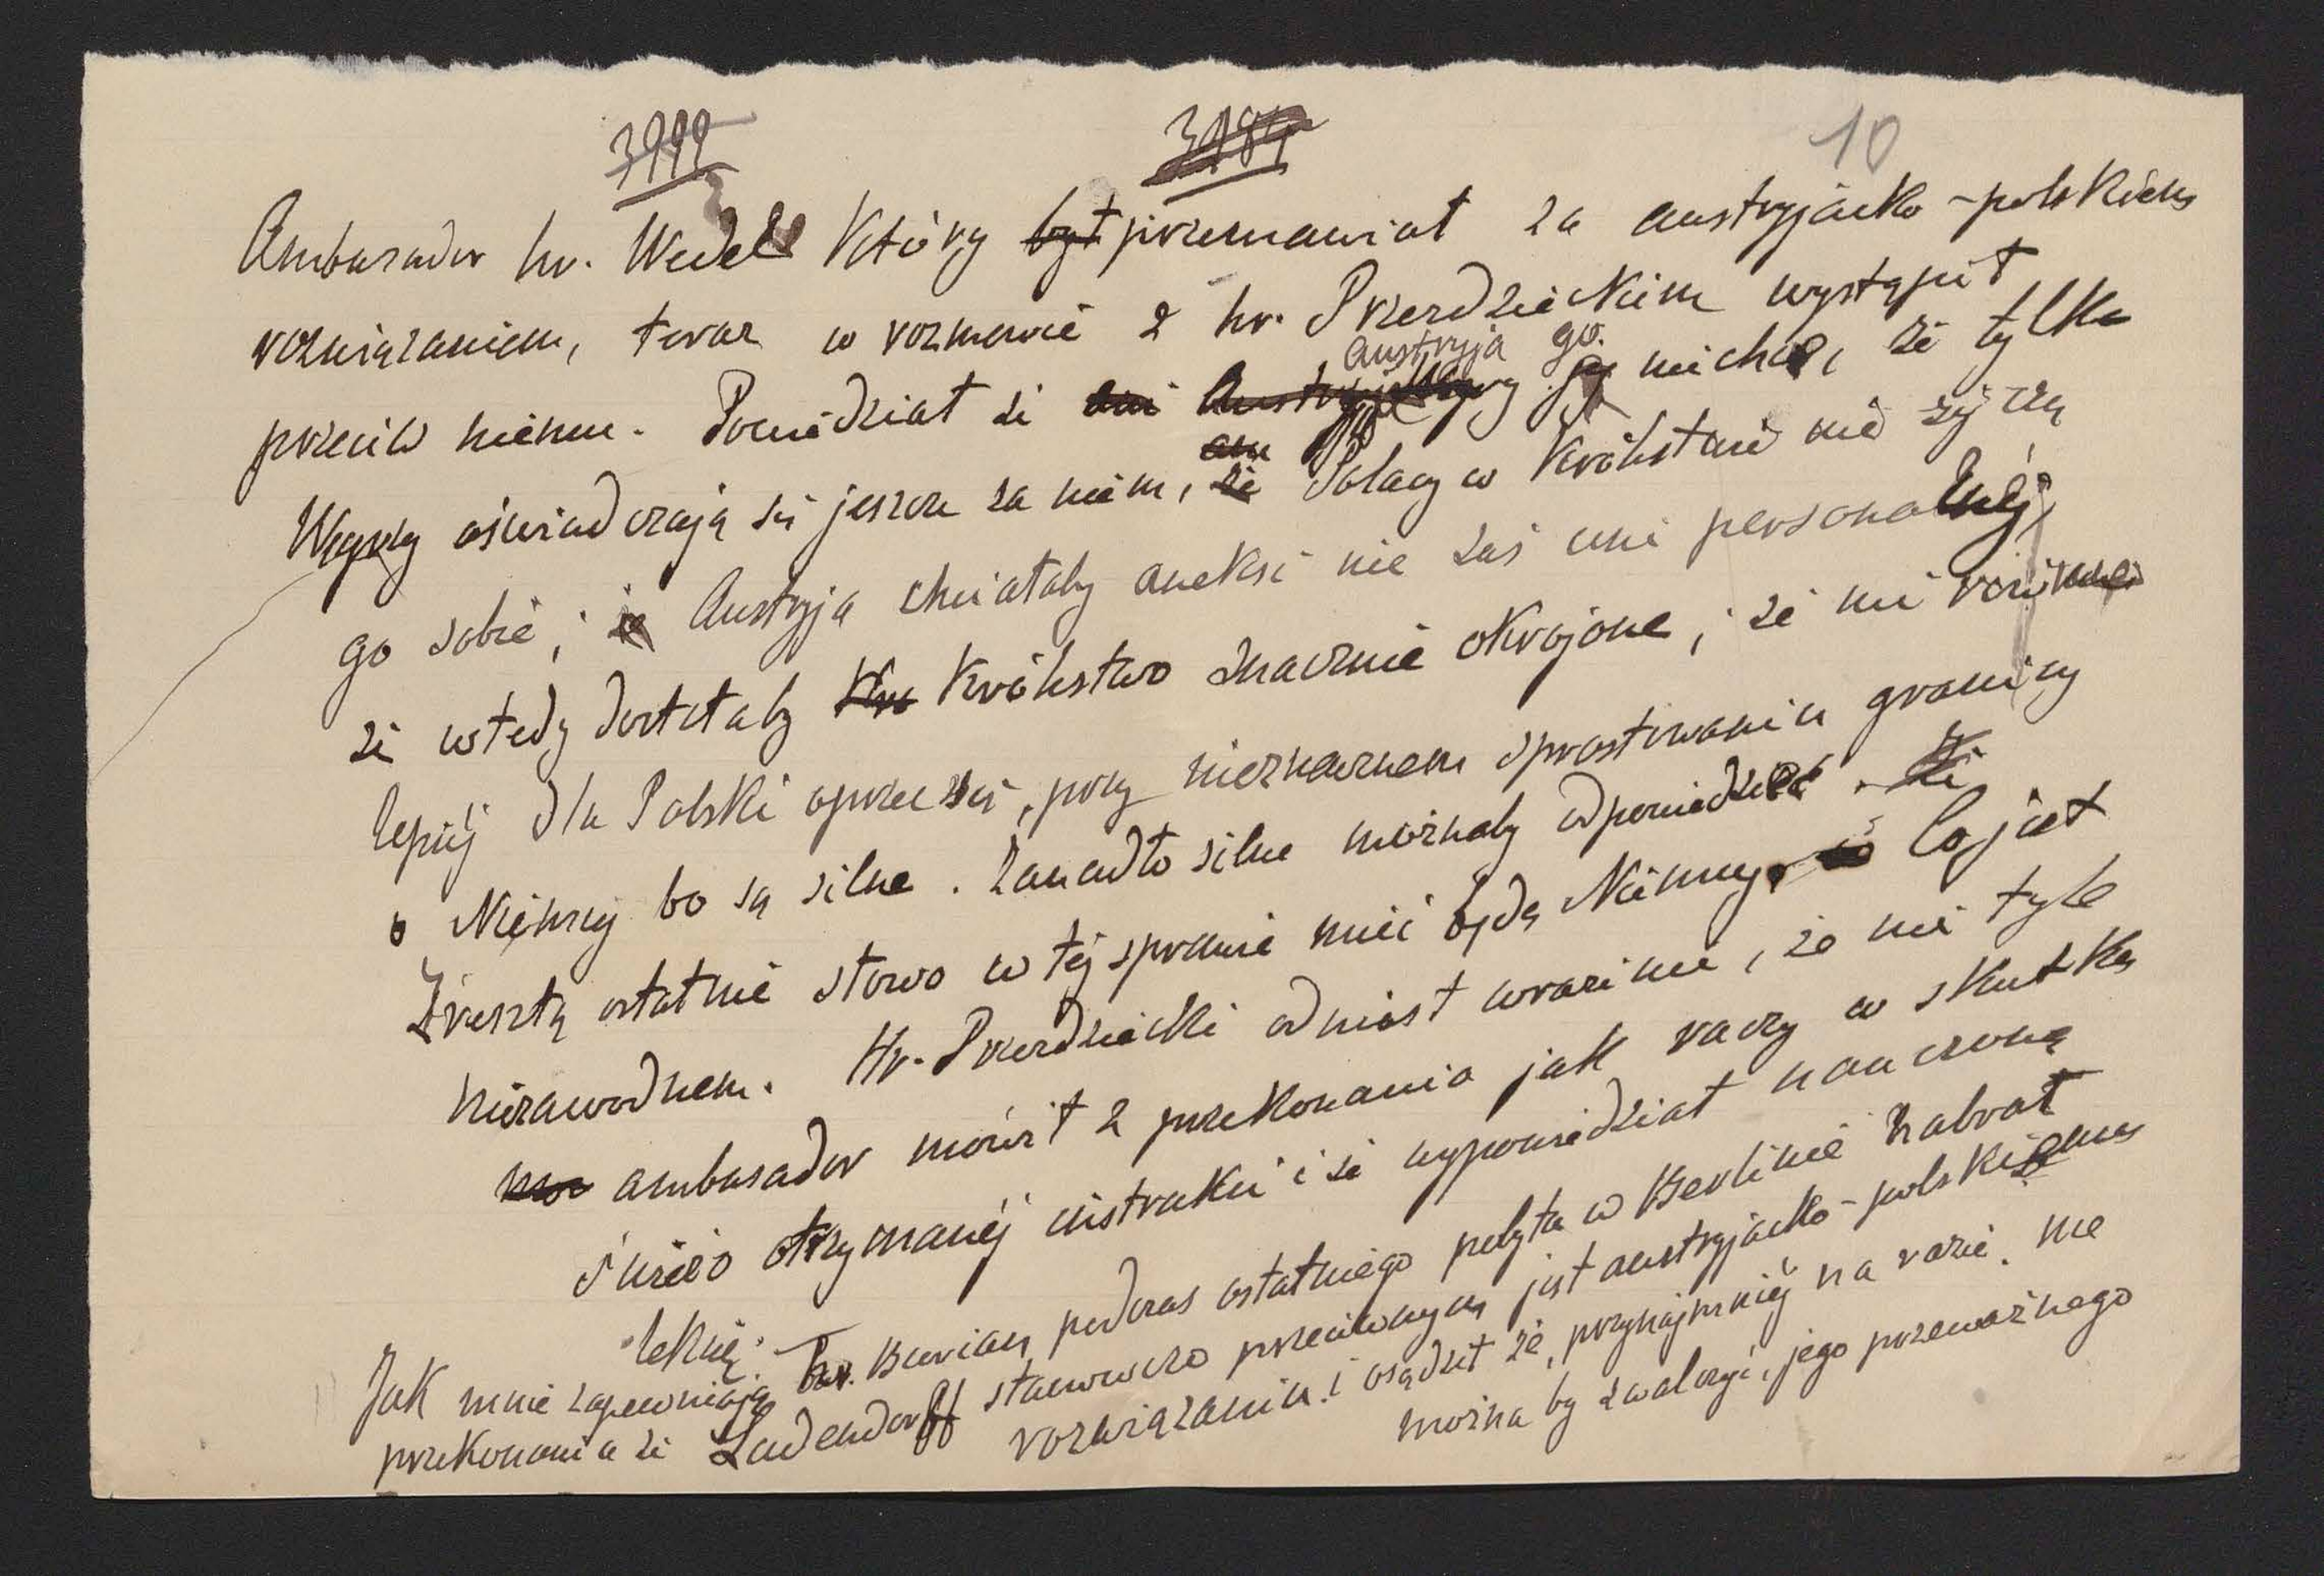 3999 3989 10
Ambasador hr. Wedel który był przemawiał za austryjacko-polskiem
rozwiązaniem, teraz w rozmowie z hr. Przezdzieckim wystąpił
austryja go
przeciw niemu. Powiedział że ani nie chce, że tylko
Węgry oświadczają się jeszcze za niem, że Polacy w Królestwie nie życzą
go sobie, i że Austryja chciałaby aneksi nie zaś uni personalnéj,
że wtedy dostałaby Kró Królestwo znacznie okrojone, że
lepiéj dla Polski oprzeć się, przy nieznacznem sprostowaniu granicy
o Niemcy bo są silne. Zanadto silne możnaby odpowiedzieć. że
Zresztą ostatnie słowo w téj sprawie mieć będą Niemcy, co Co jest
niezawodnem. Hr. Przezdziecki odniósł wrażenie, że nie tyle
ambasador mówił z przekonania jak raczy w skutku
świeżo otrzymanéj instrukcii i że wypowiedział nauczoną
lekcię.
Jak mnie zapewniają hr. Burian podczas ostatniego pobytu w Berlinie nabrał
przekonania że Ludendorff stanowczo przeciwnym jest austryjacko-polskiemu
rozwiązaniu i osądził że, przynajmniéj na razie. nie
można by zwalczyć, jego przeważnego